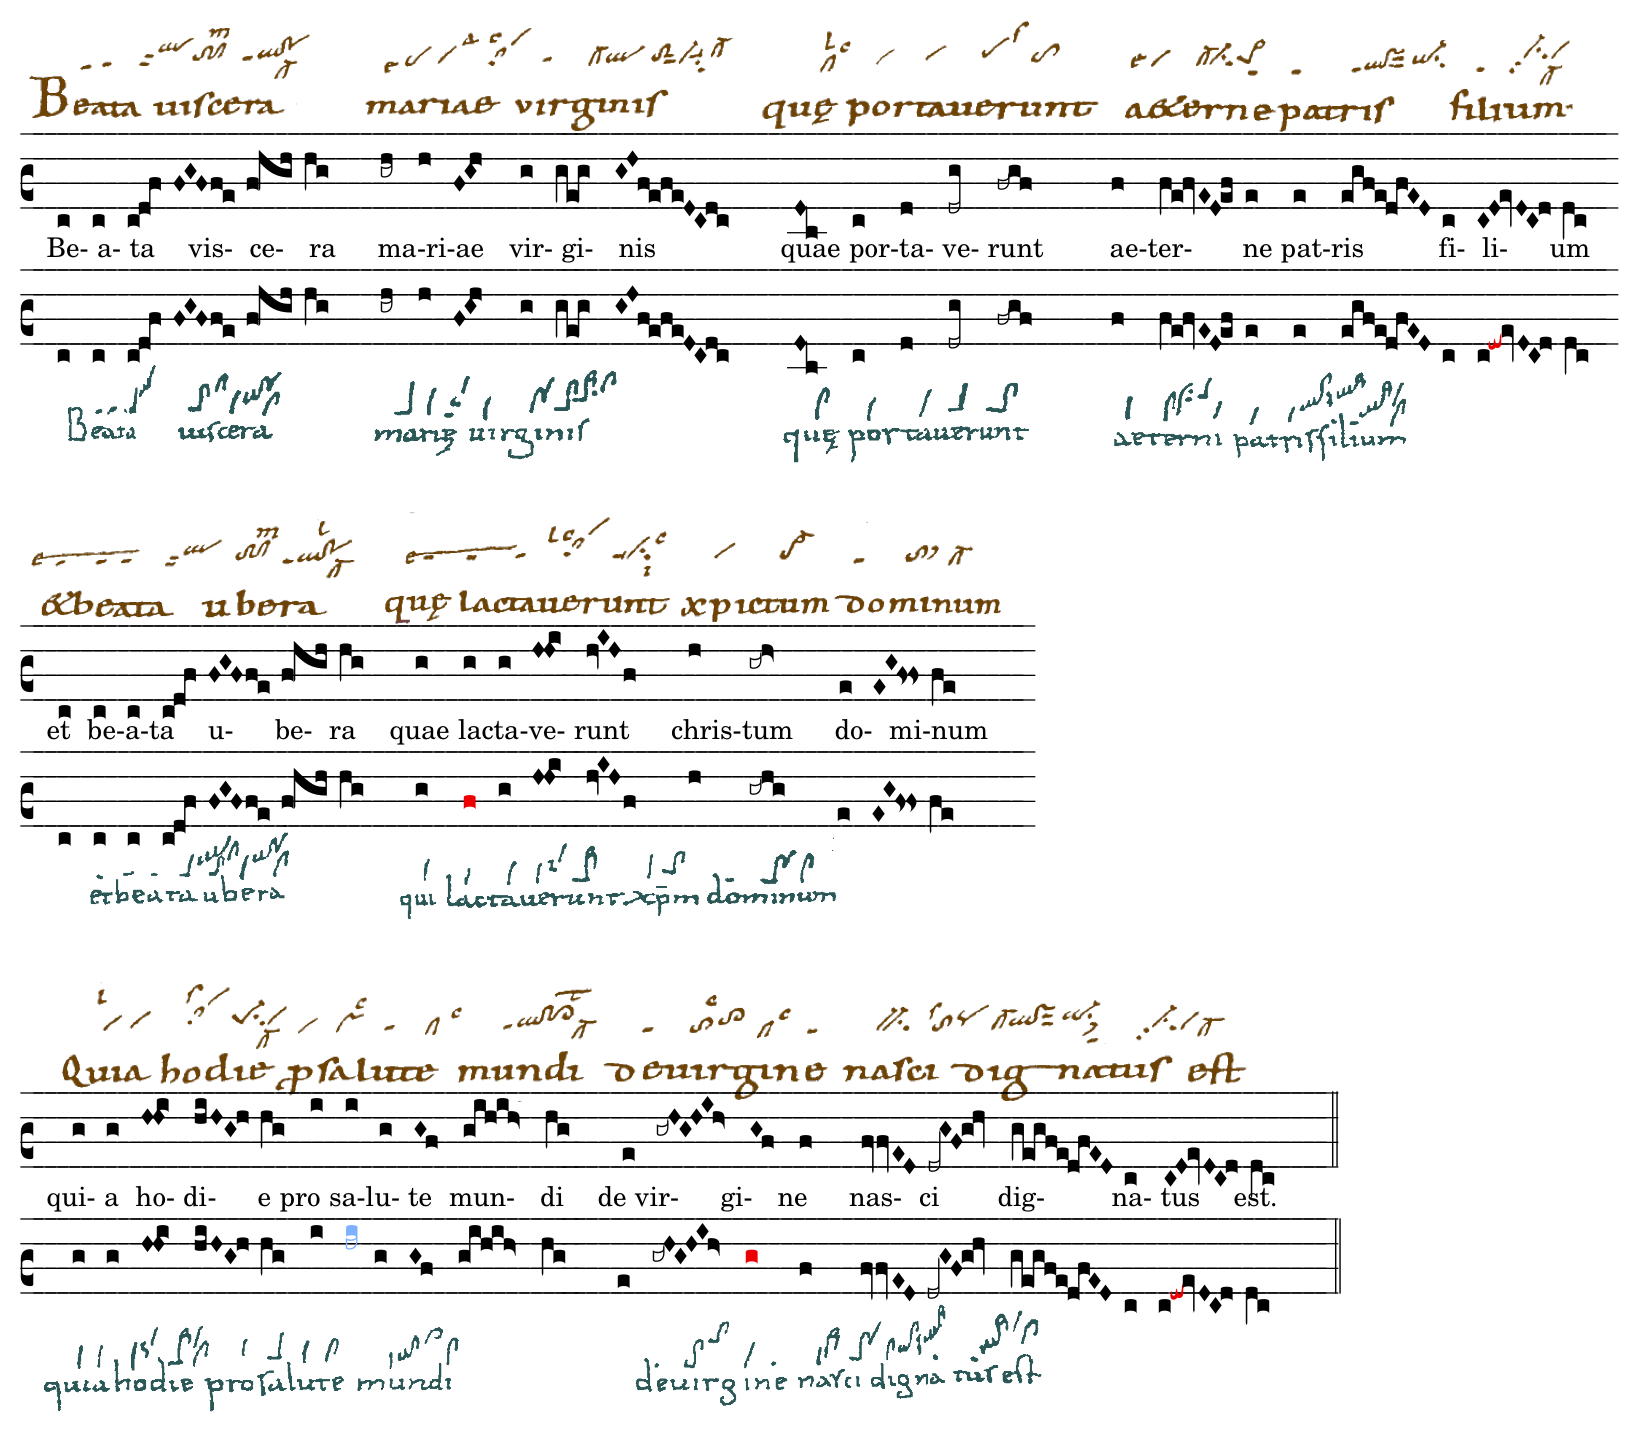 Beata uiscera mariae virginis quę portauerunt a&erne patris filium
Be- a- ta vis- ce- ra ma-ri-ae vir- gi- nis quae por-ta- ve- runt ae-ter- ne pat-ris fi- li- um
Beata uiscera marię uirginis quę portauerunt aeterni patris filium
&beata ubera quę lactauerunt xpictum dominum
et be-a-ta u- be- ra quae lacta-ve- runt chris-tum do- mi-num
et beata ubera qui lactauerunt xp̄m dominum
Quia hodie psalute mundi deuirgine nasci dignatus est
qui- a ho-di- e pro sa-lu- te mun- di de vir- gi- ne nas- ci dig- na- tus est.
quia hodie pro salute mundi deuirgine nasci dignatus est